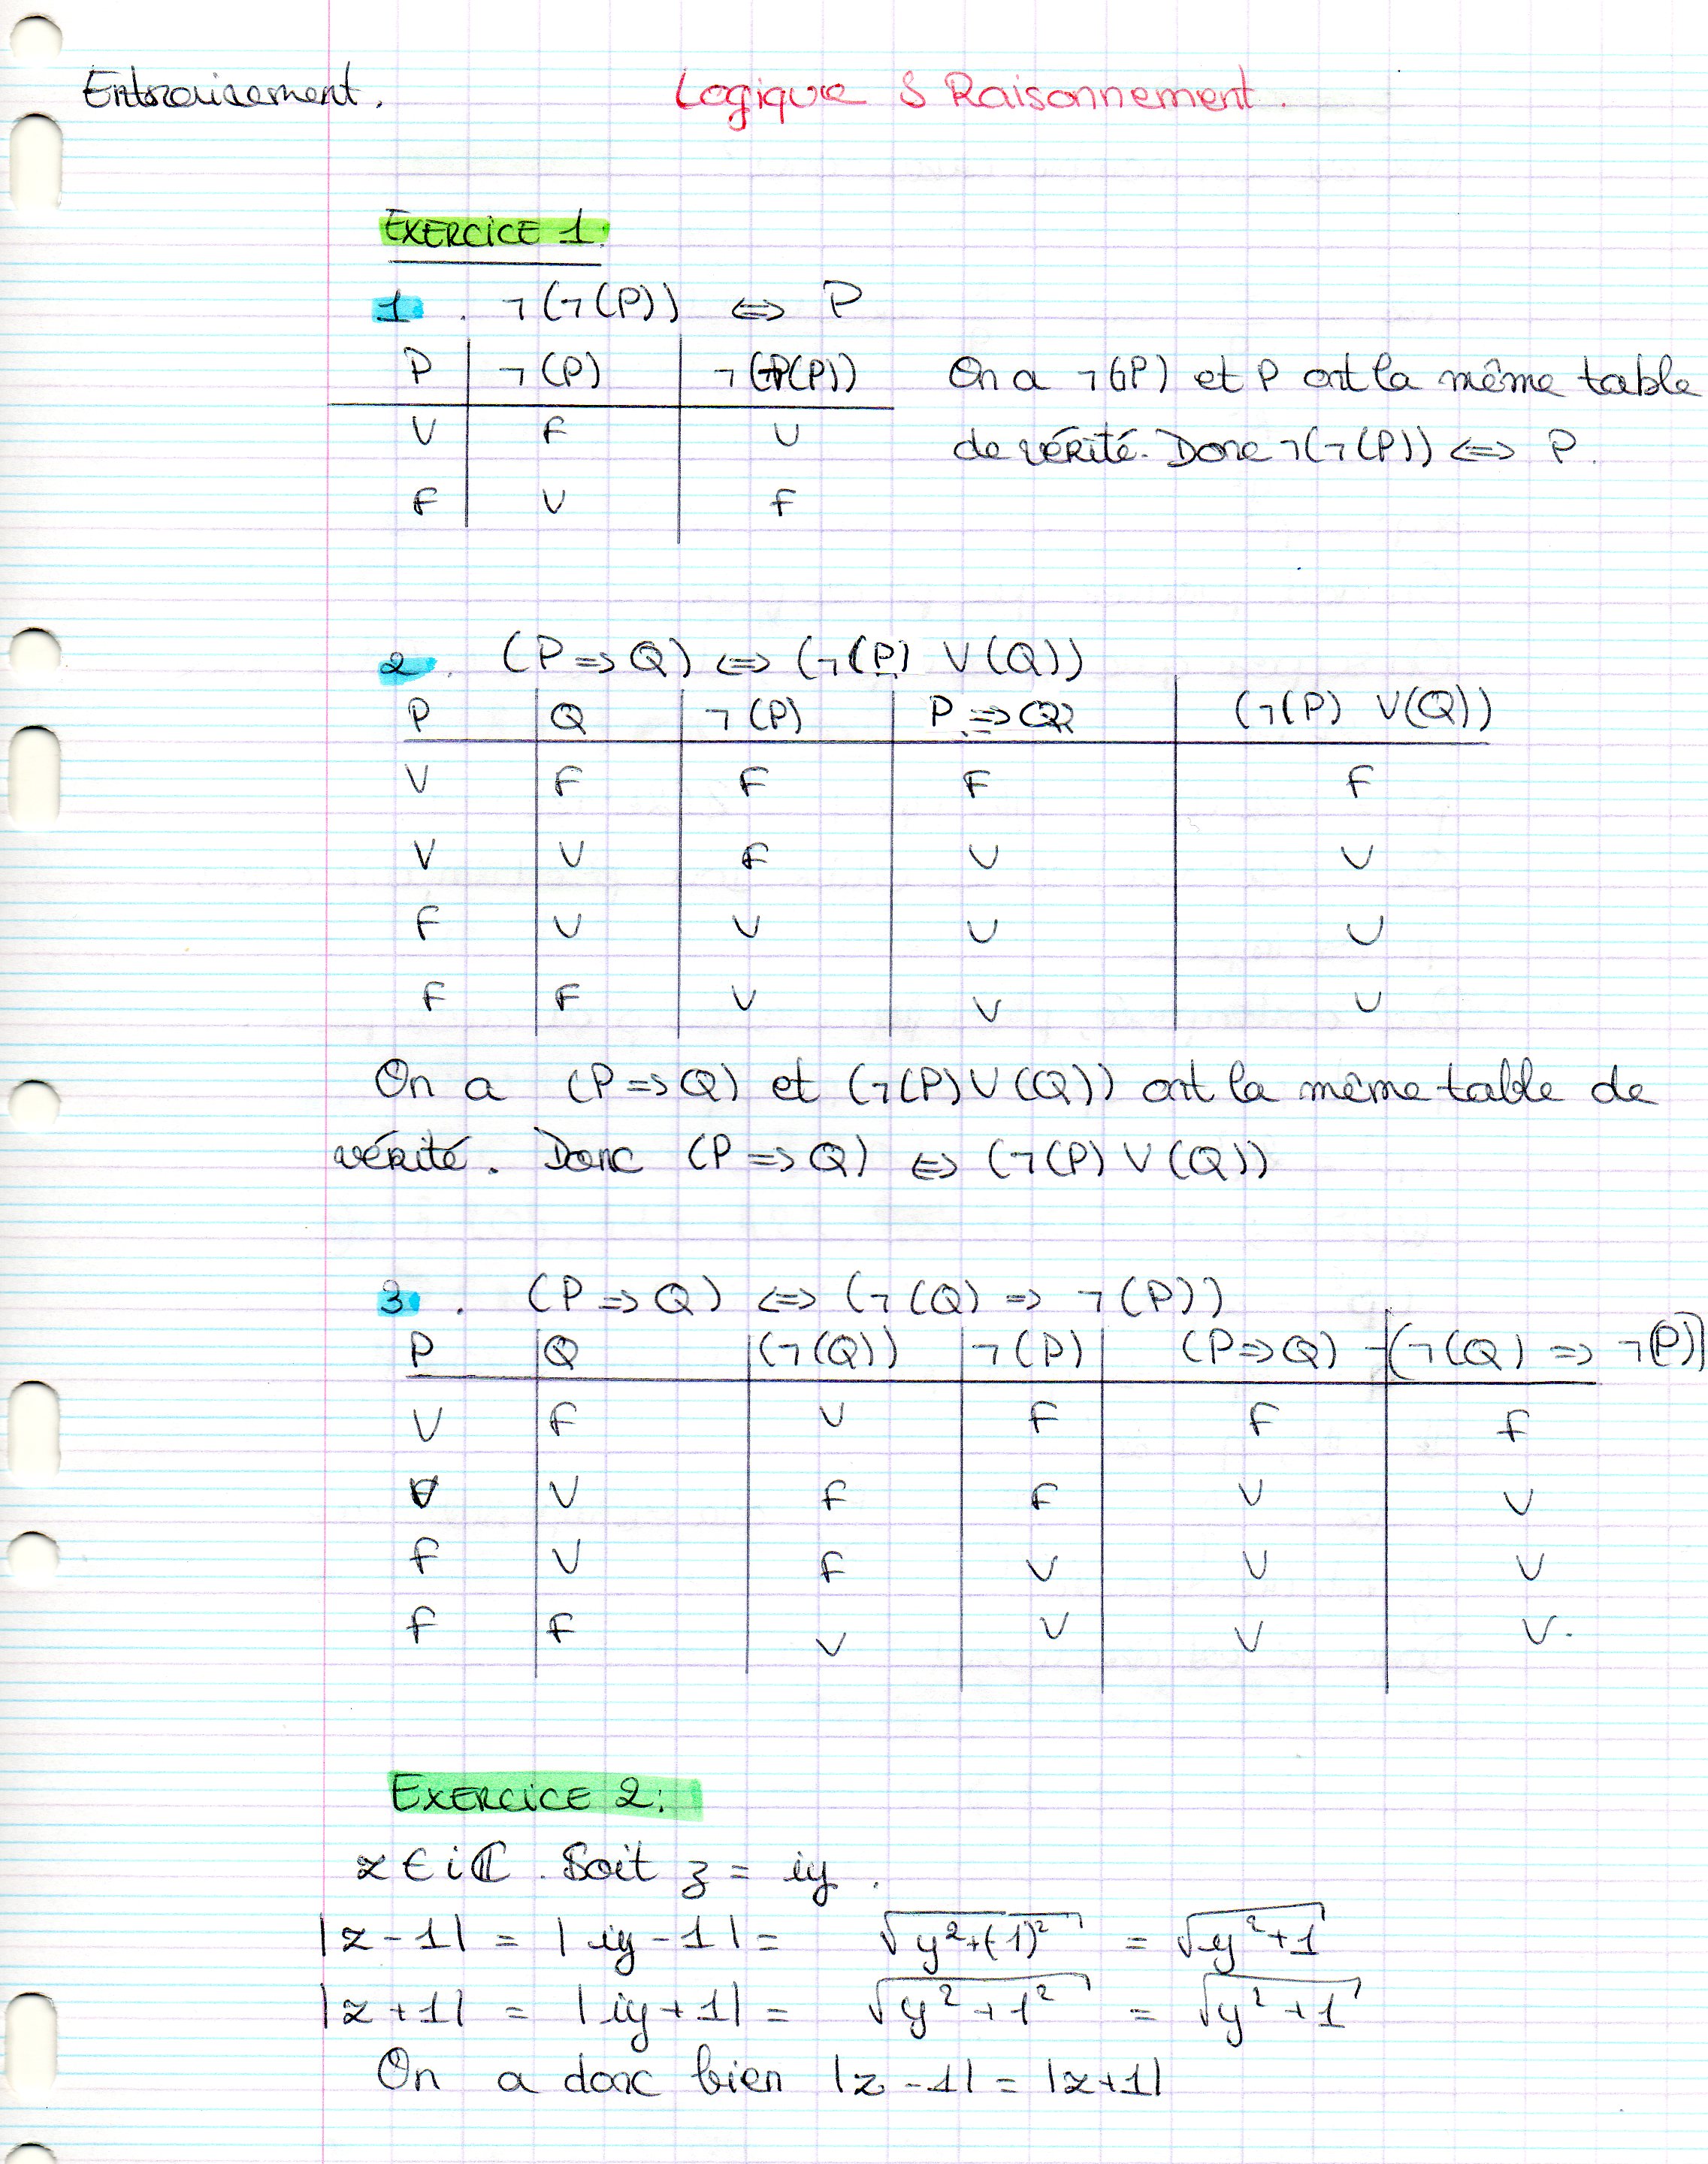 Entrainement. Logique & Raisonnement.
EXERCICE 1:
1. ¬(¬(P)) ⇔ P
P | ¬(P) | ¬(¬(P)) On a ¬(¬P) et P ont la même table
V | F | V de vérité. Donc ¬(¬(P)) ⇔ P.
F | V | F
2. (P ⇒ Q) ⇔ (¬(P) V (Q))
P | Q | ¬(P) | P ⇒ (Q) | (¬(P) V (Q))
V | F | F | F | F
V | V | F | V | V
F | V | V | V | V
F | F | V | V | V
On a (P ⇒ Q) et (¬(P) V (Q)) ont la même table de
vérité. Donc (P ⇒ Q) ⇔ (¬(P) V (Q))
3. (P ⇒ Q) ⇔ (¬(Q) ⇒ ¬(P))
P | Q | (¬(Q)) | ¬(P) | (P ⇒ Q) | (¬(Q) ⇒ ¬(P))
V | F | V | F | F | F
V | V | F | F | V | V
F | V | F | V | V | V
F | F | V | V | V | V.
EXERCICE 2:
z ∈ iℂ. Soit z = iy.
|z - 1| = |iy - 1| = √(y²+(-1)²) = √(y²+1)
|z + 1| = |iy + 1| = √(y² + 1²) = √(y² + 1)
On a donc bien |z - 1| = |z + 1|